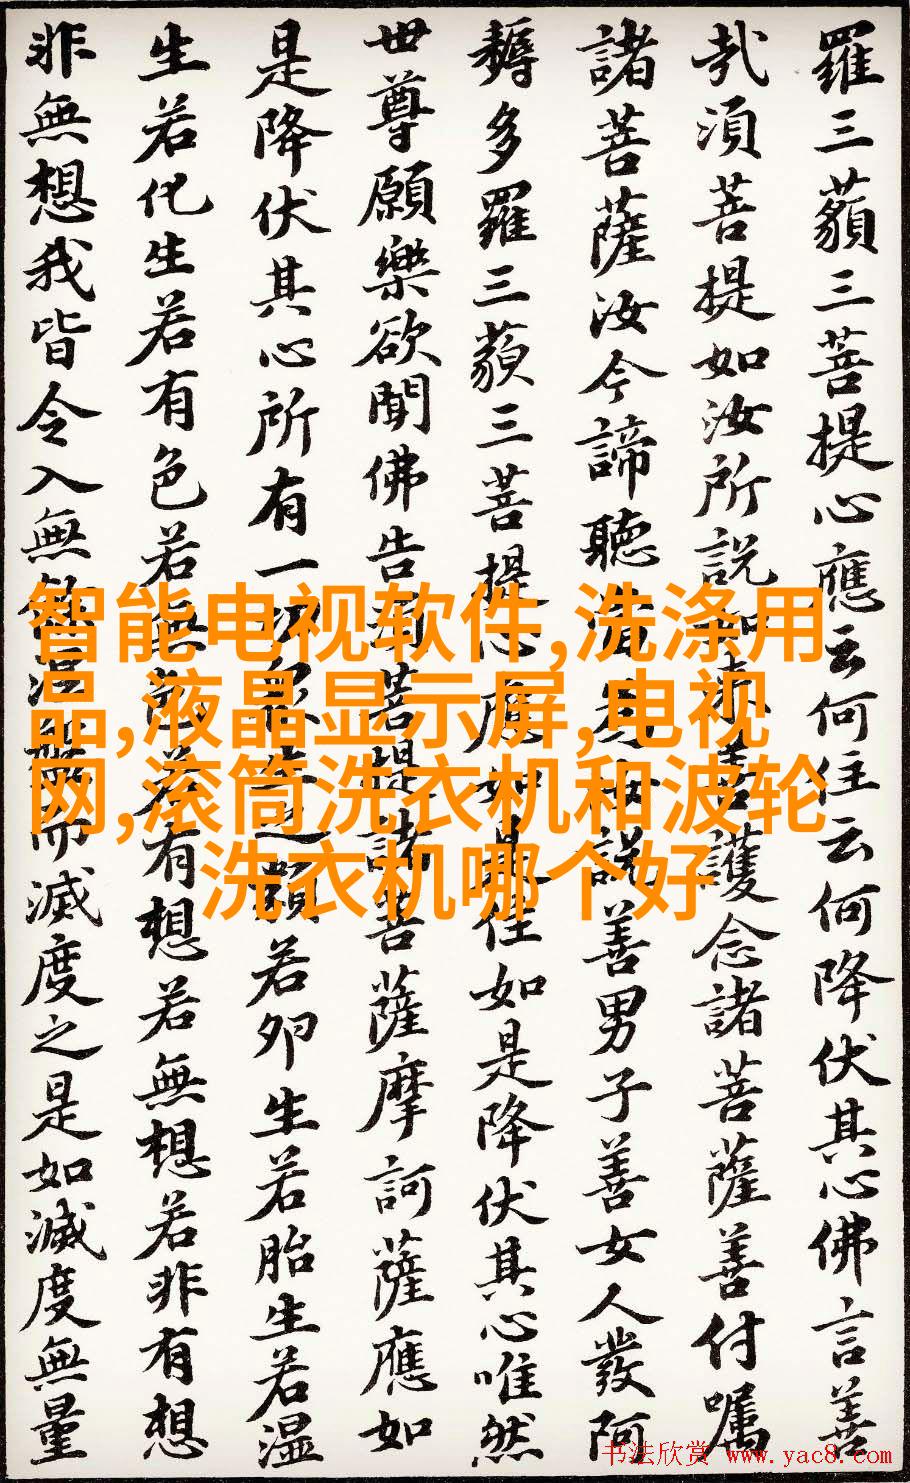 羅三藐三菩提心應云何住云何降伏其心佛言善
哉須菩提如汝所説如來善護念諸菩薩善付囑
諸菩薩汝今諦聽當為汝説善男子善女人發阿
耨多羅三藐三菩提心應如是住如是降伏其心唯然
世尊願樂欲聞佛告須菩提諸菩薩摩訶薩應如
是降伏其心所有一切眾生之類若卵生若胎生若湿
生若化生若有色若無色若有想若無想若非有想
非無想我皆令入無餘涅槃而滅度之是如滅度無量
智能电视软件,洗涤用
品,液晶显示屏,电视
网,滚筒洗衣机和波轮
洗衣机哪个好
书法欣赏 www.yac8.com